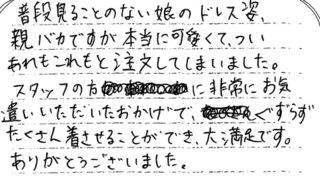 普段見ることのない娘のドレス姿、
親バカですが本当に可愛くて、つい
あれもこれもと注文してしまいました。
スタッフの方に非常にお気
遣いいただいたおかげで、ぐずらず
たくさん着させることができ、大満足です。
ありがとうございました。